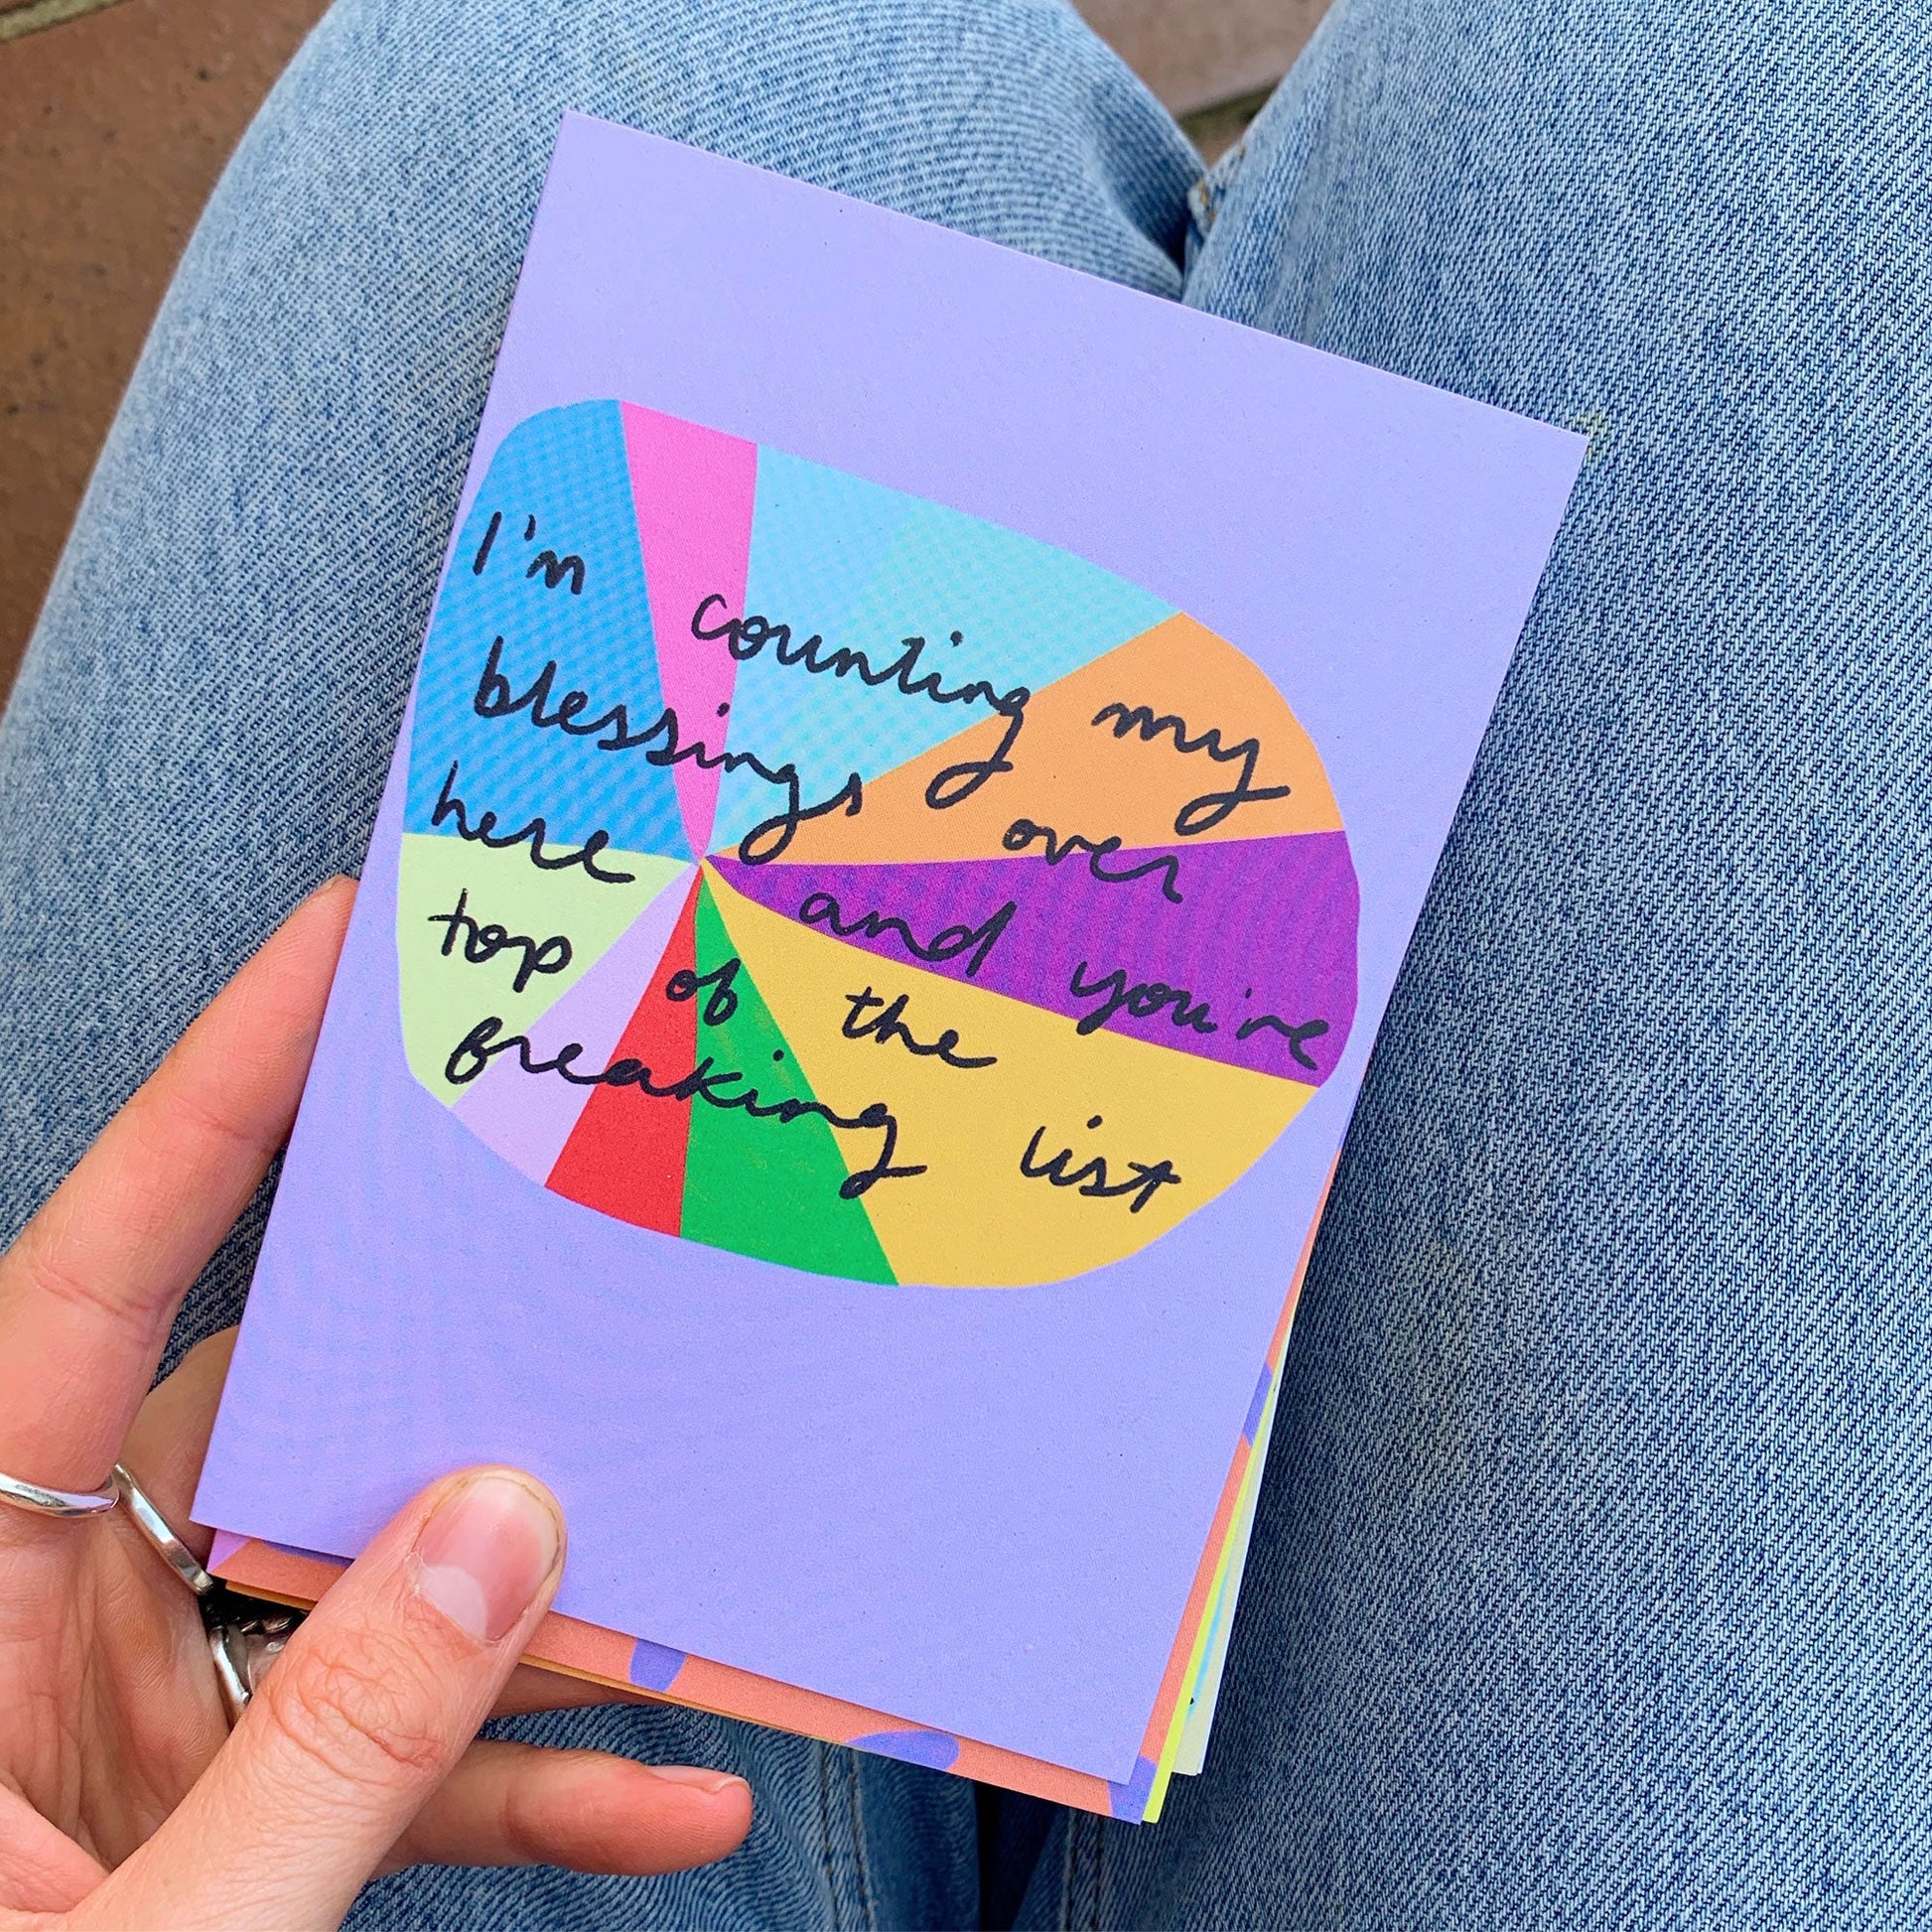 I'm counting my
blessings over
here and you're
top of the
freaking list